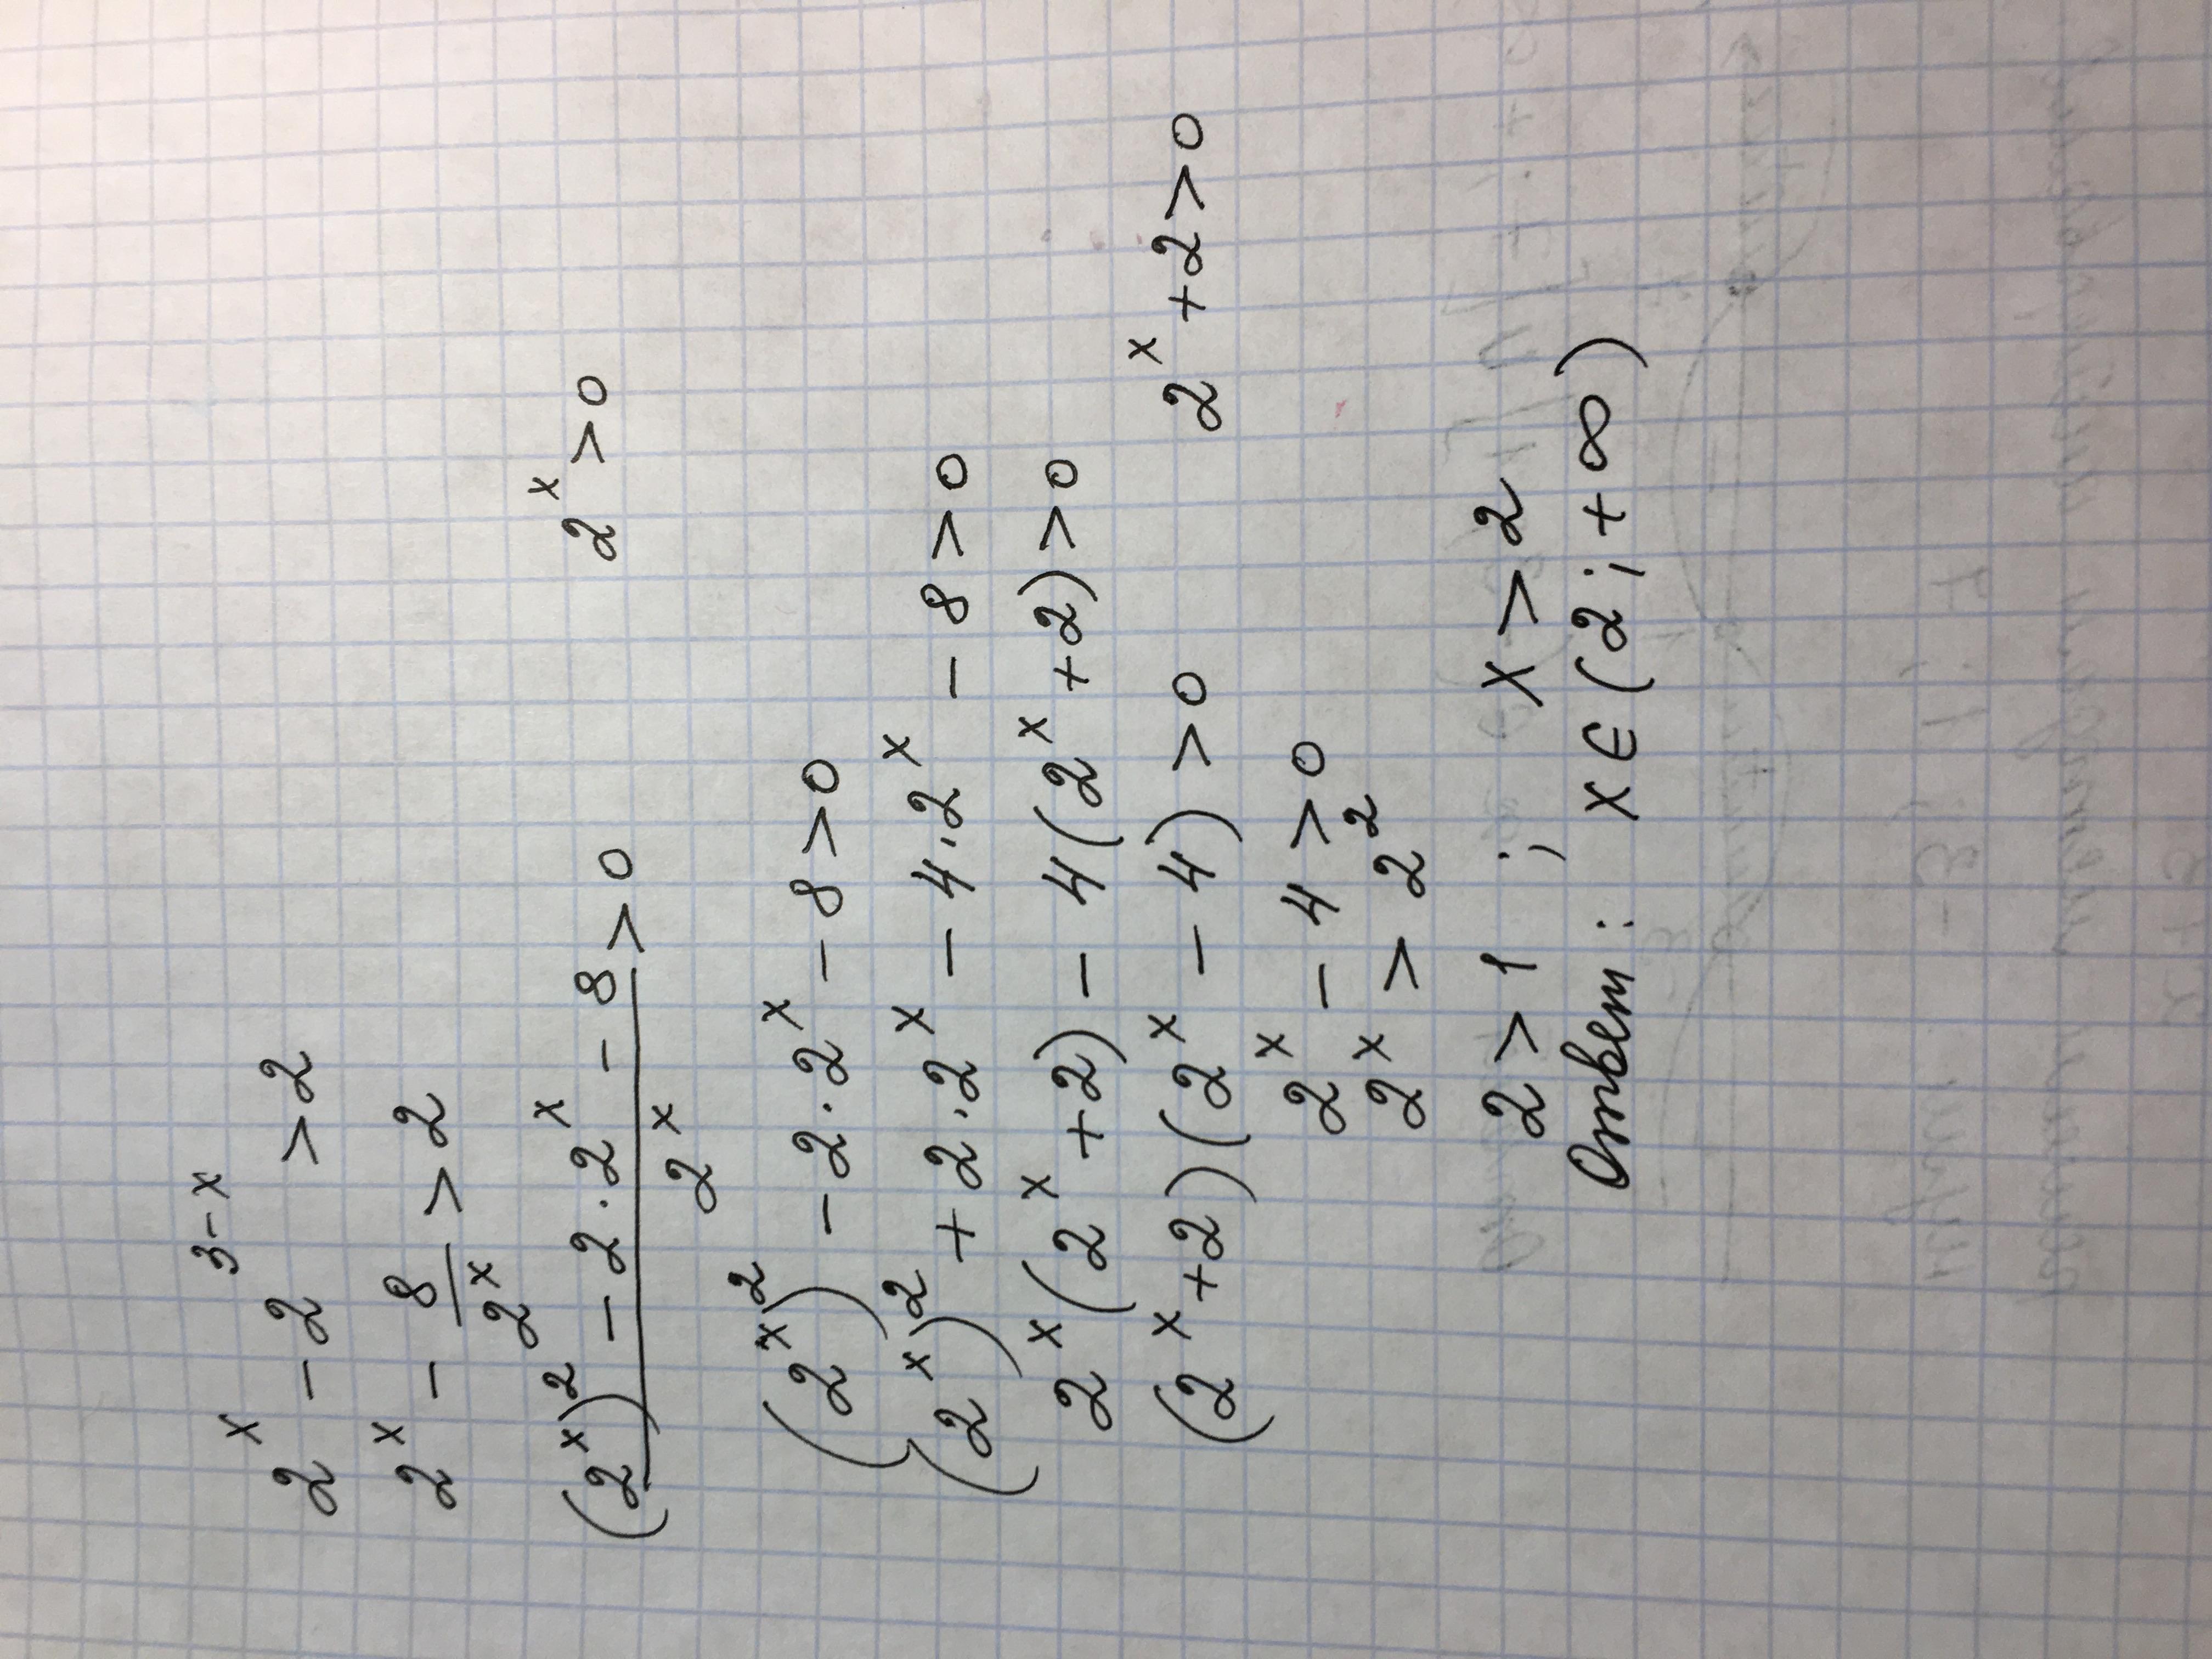 2ˣ - 2³⁻ˣ > 2
2ˣ - 8/2ˣ > 2
((2ˣ)² - 2·2ˣ - 8)/2ˣ > 0    2ˣ > 0
(2ˣ)² - 2·2ˣ - 8 > 0
(2ˣ)² + 2·2ˣ - 4·2ˣ - 8 > 0
2ˣ(2ˣ + 2) - 4(2ˣ + 2) > 0
(2ˣ + 2)(2ˣ - 4) > 0    2ˣ + 2 > 0
2ˣ - 4 > 0
2ˣ > 2²
2 > 1 ; x > 2
Ответ: x ∈ (2; +∞)